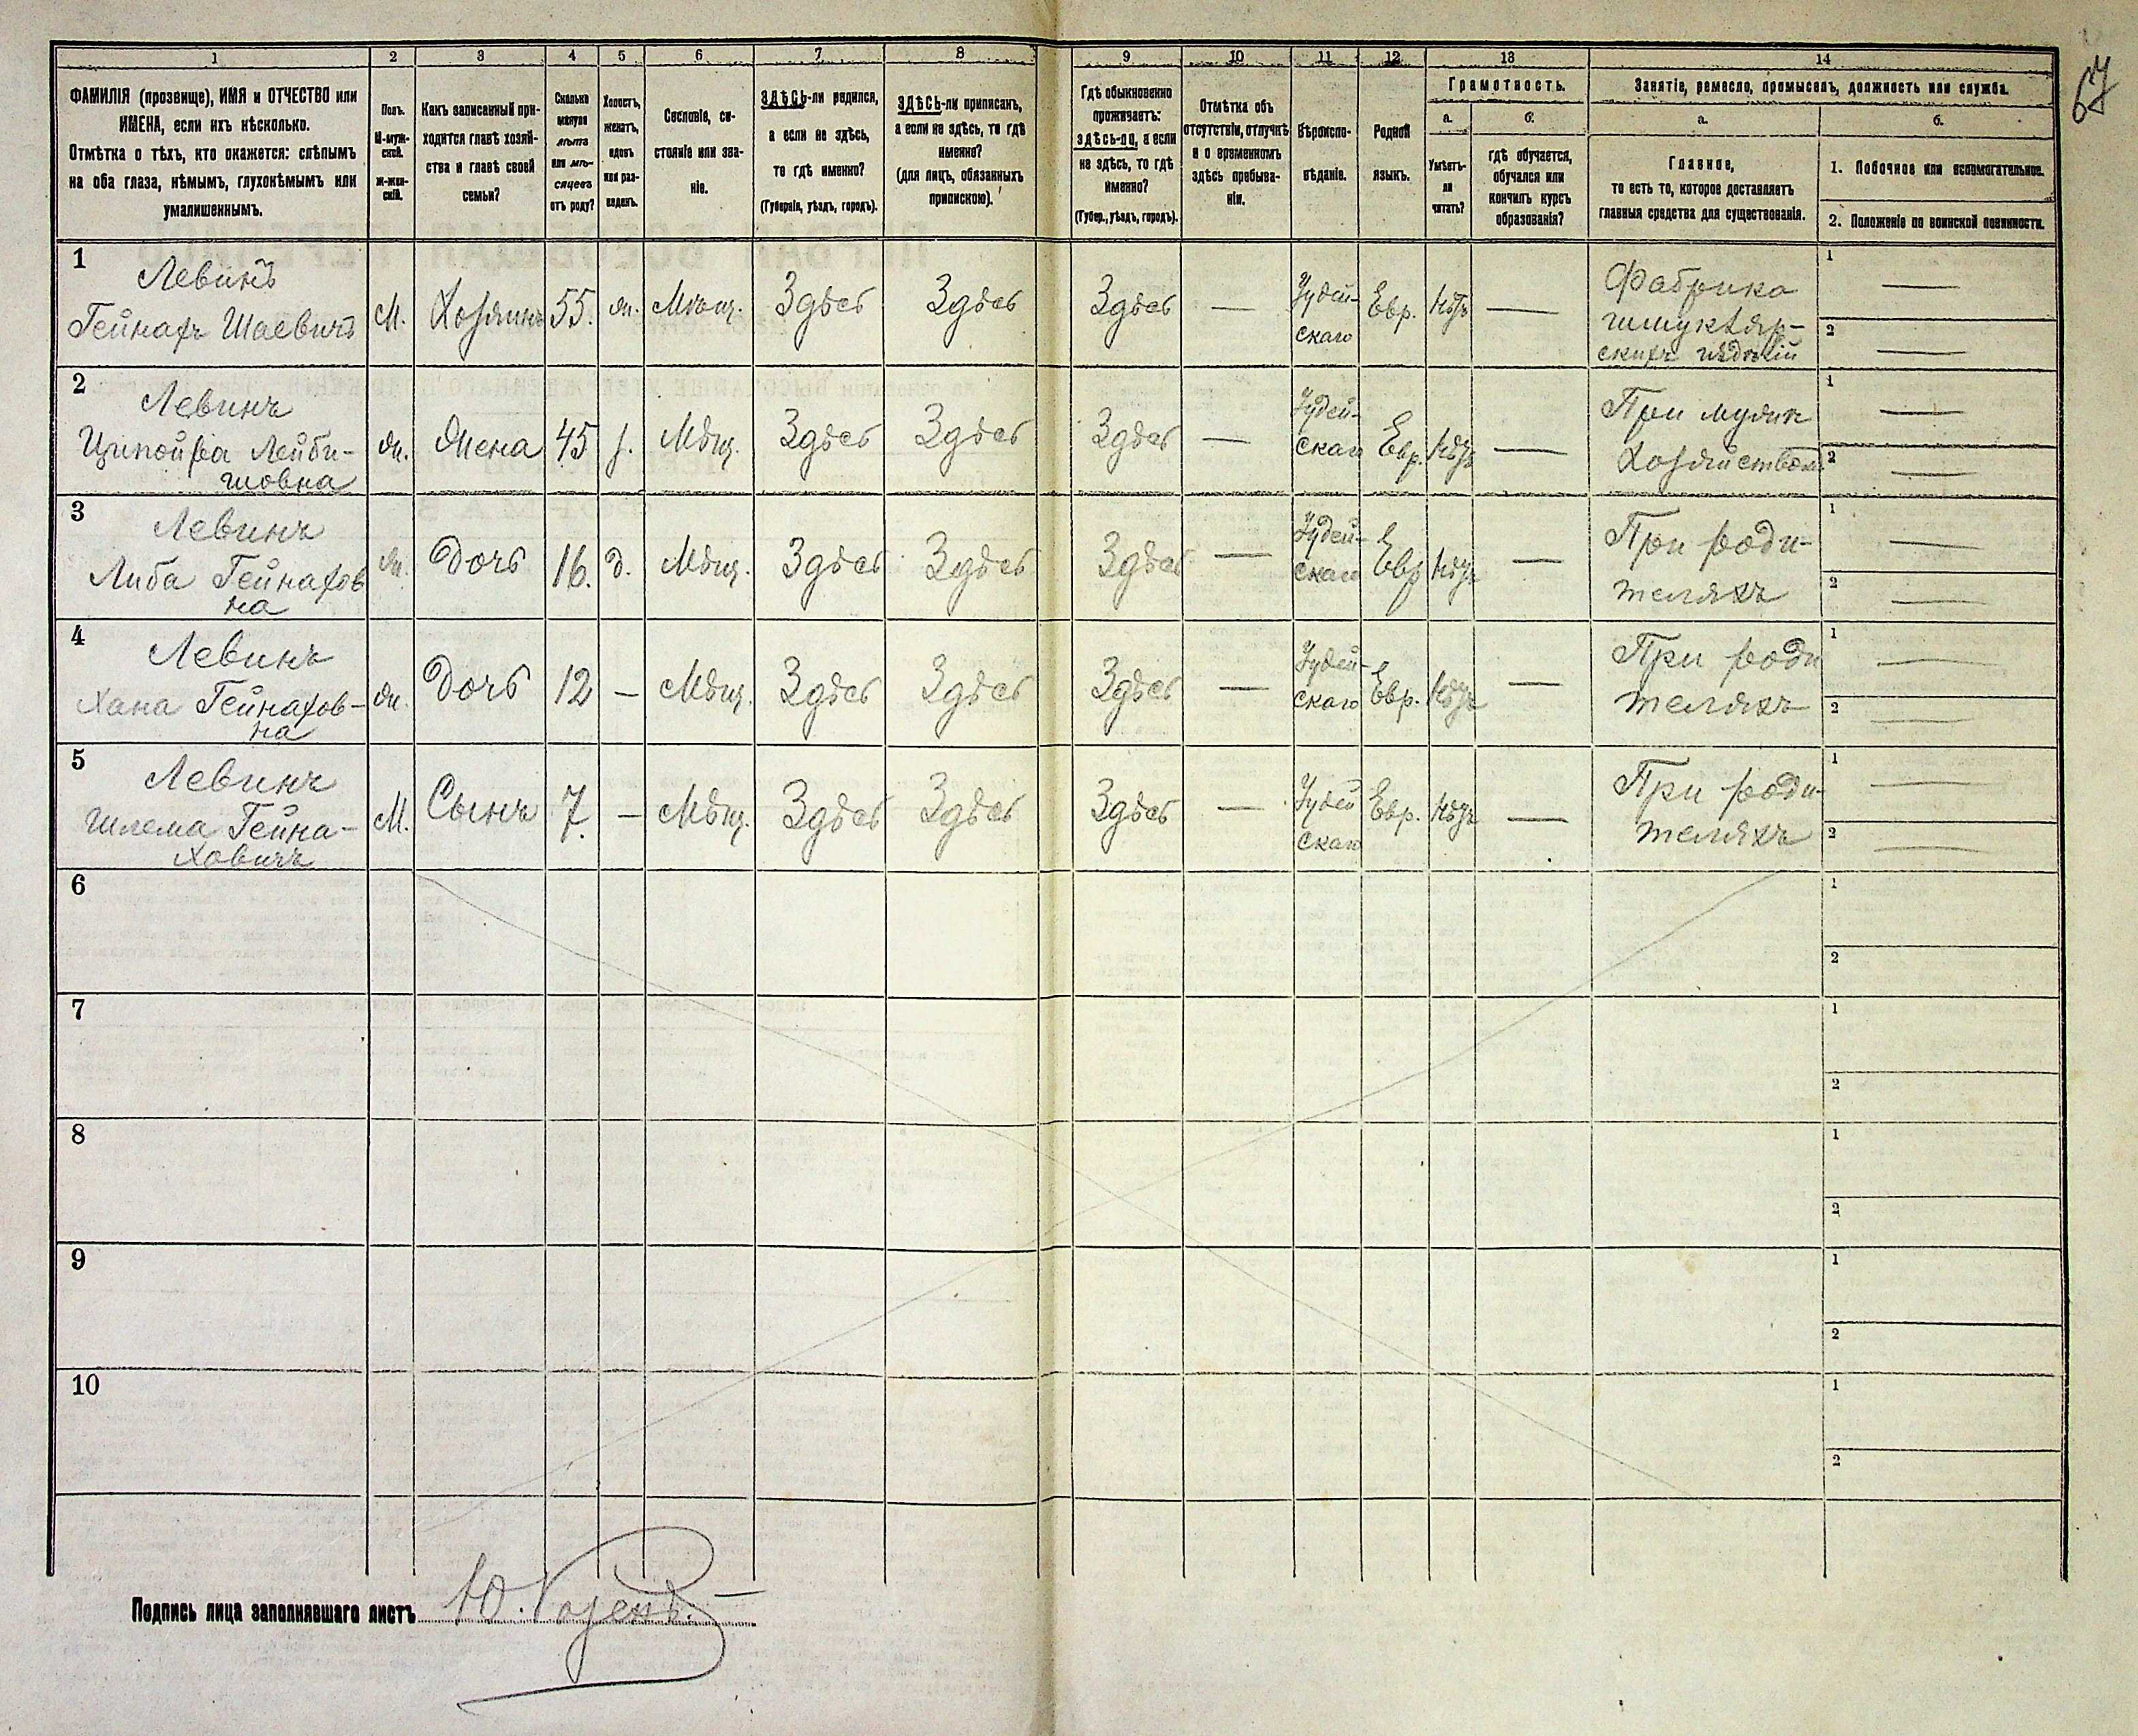 67
1 2 3 4 5 6 7 8 9 10 11 12 13 14
ФАМИЛІЯ (прозвище), ИМЯ и ОТЧЕСТВО или
ИМЕНА, если ихъ нѣсколько.
Отмѣтка о тѣхъ, кто окажется: слѣпымъ
на оба глаза, нѣмымъ, глухонѣмымъ или
умалишеннымъ.
Полъ.
М-муж-
ской.
Ж-жен-
скій.
Какъ записанный при-
ходится главѣ хозяй-
ства и главѣ своей
семьи?
Сколько
минуло
лѣтъ
или мѣ-
сяцевъ
отъ роду?
Холостъ,
женатъ,
вдовъ
или раз-
веденъ.
Сословіе, со-
стояніе или зва-
ніе.
ЗДѢСЬ-ли родился,
а если не здѣсь,
то гдѣ именно?
(Губернія, уѣздъ, городъ).
ЗДѢСЬ-ли приписанъ,
а если не здѣсь, то гдѣ
именно?
(для лицъ, обязанныхъ
припискою).
Гдѣ обыкновенно
проживаетъ:
ЗДѢСЬ-ли, а если
не здѣсь, то гдѣ
именно?
(Губер., уѣздъ, городъ).
Отмѣтка объ
отсутствіи, отлучкѣ
и о временномъ
здѣсь пребыва-
ніи.
Вѣроиспо-
вѣданіе.
Родной
языкъ.
Грамотность.
а. б.
Умѣетъ-
ли
читать?
гдѣ обучается,
обучался или
кончилъ курсъ
образованія?
Занятіе, ремесло, промыселъ, должность или служба.
а. б.
Главное,
то есть то, которое доставляетъ
главныя средства для существованія.
1. Побочное или вспомогательное.
2. Положеніе по воинской повинности.
1
Левинъ
Гейнахъ Шаевичъ
М. Хозяинъ 55. ж. Мѣщ. Здѣсь Здѣсь Здѣсь — Іудей-
скаго
Евр. Нѣтъ —
Фабрика
шмуклер-
скихъ издѣлій
1 —
2 —
2
Левинъ
Ципойра Лейби-
шовна
ж. Жена 45 з. Мѣщ. Здѣсь Здѣсь Здѣсь — Іудей-
скаго
Евр. Нѣтъ —
При мужѣ
Хозяйствомъ
1 —
2 —
3
Левинъ
Либа Гейнахов
на
ж. Дочь 16. д. Мѣщ. Здѣсь Здѣсь Здѣсь — Іудей-
скаго
Евр Нѣтъ —
При роди-
теляхъ
1 —
2 —
4
Левинъ
Хана Гейнахов-
на
ж. Дочь 12 — Мѣщ. Здѣсь Здѣсь Здѣсь — Іудей-
скаго
Евр. Нѣтъ —
При роди
теляхъ
1 —
2 —
5
Левинъ
Шлема Гейна-
ховичъ
М. Сынъ 7. — Мѣщ. Здѣсь Здѣсь Здѣсь — Іудей
скаго
Евр. Нѣтъ —
При роди-
теляхъ
1 —
2 —
6
1
2
7
1
2
8
1
2
9
1
2
10
1
2
Подпись лица заполнявшаго листъ Ю.